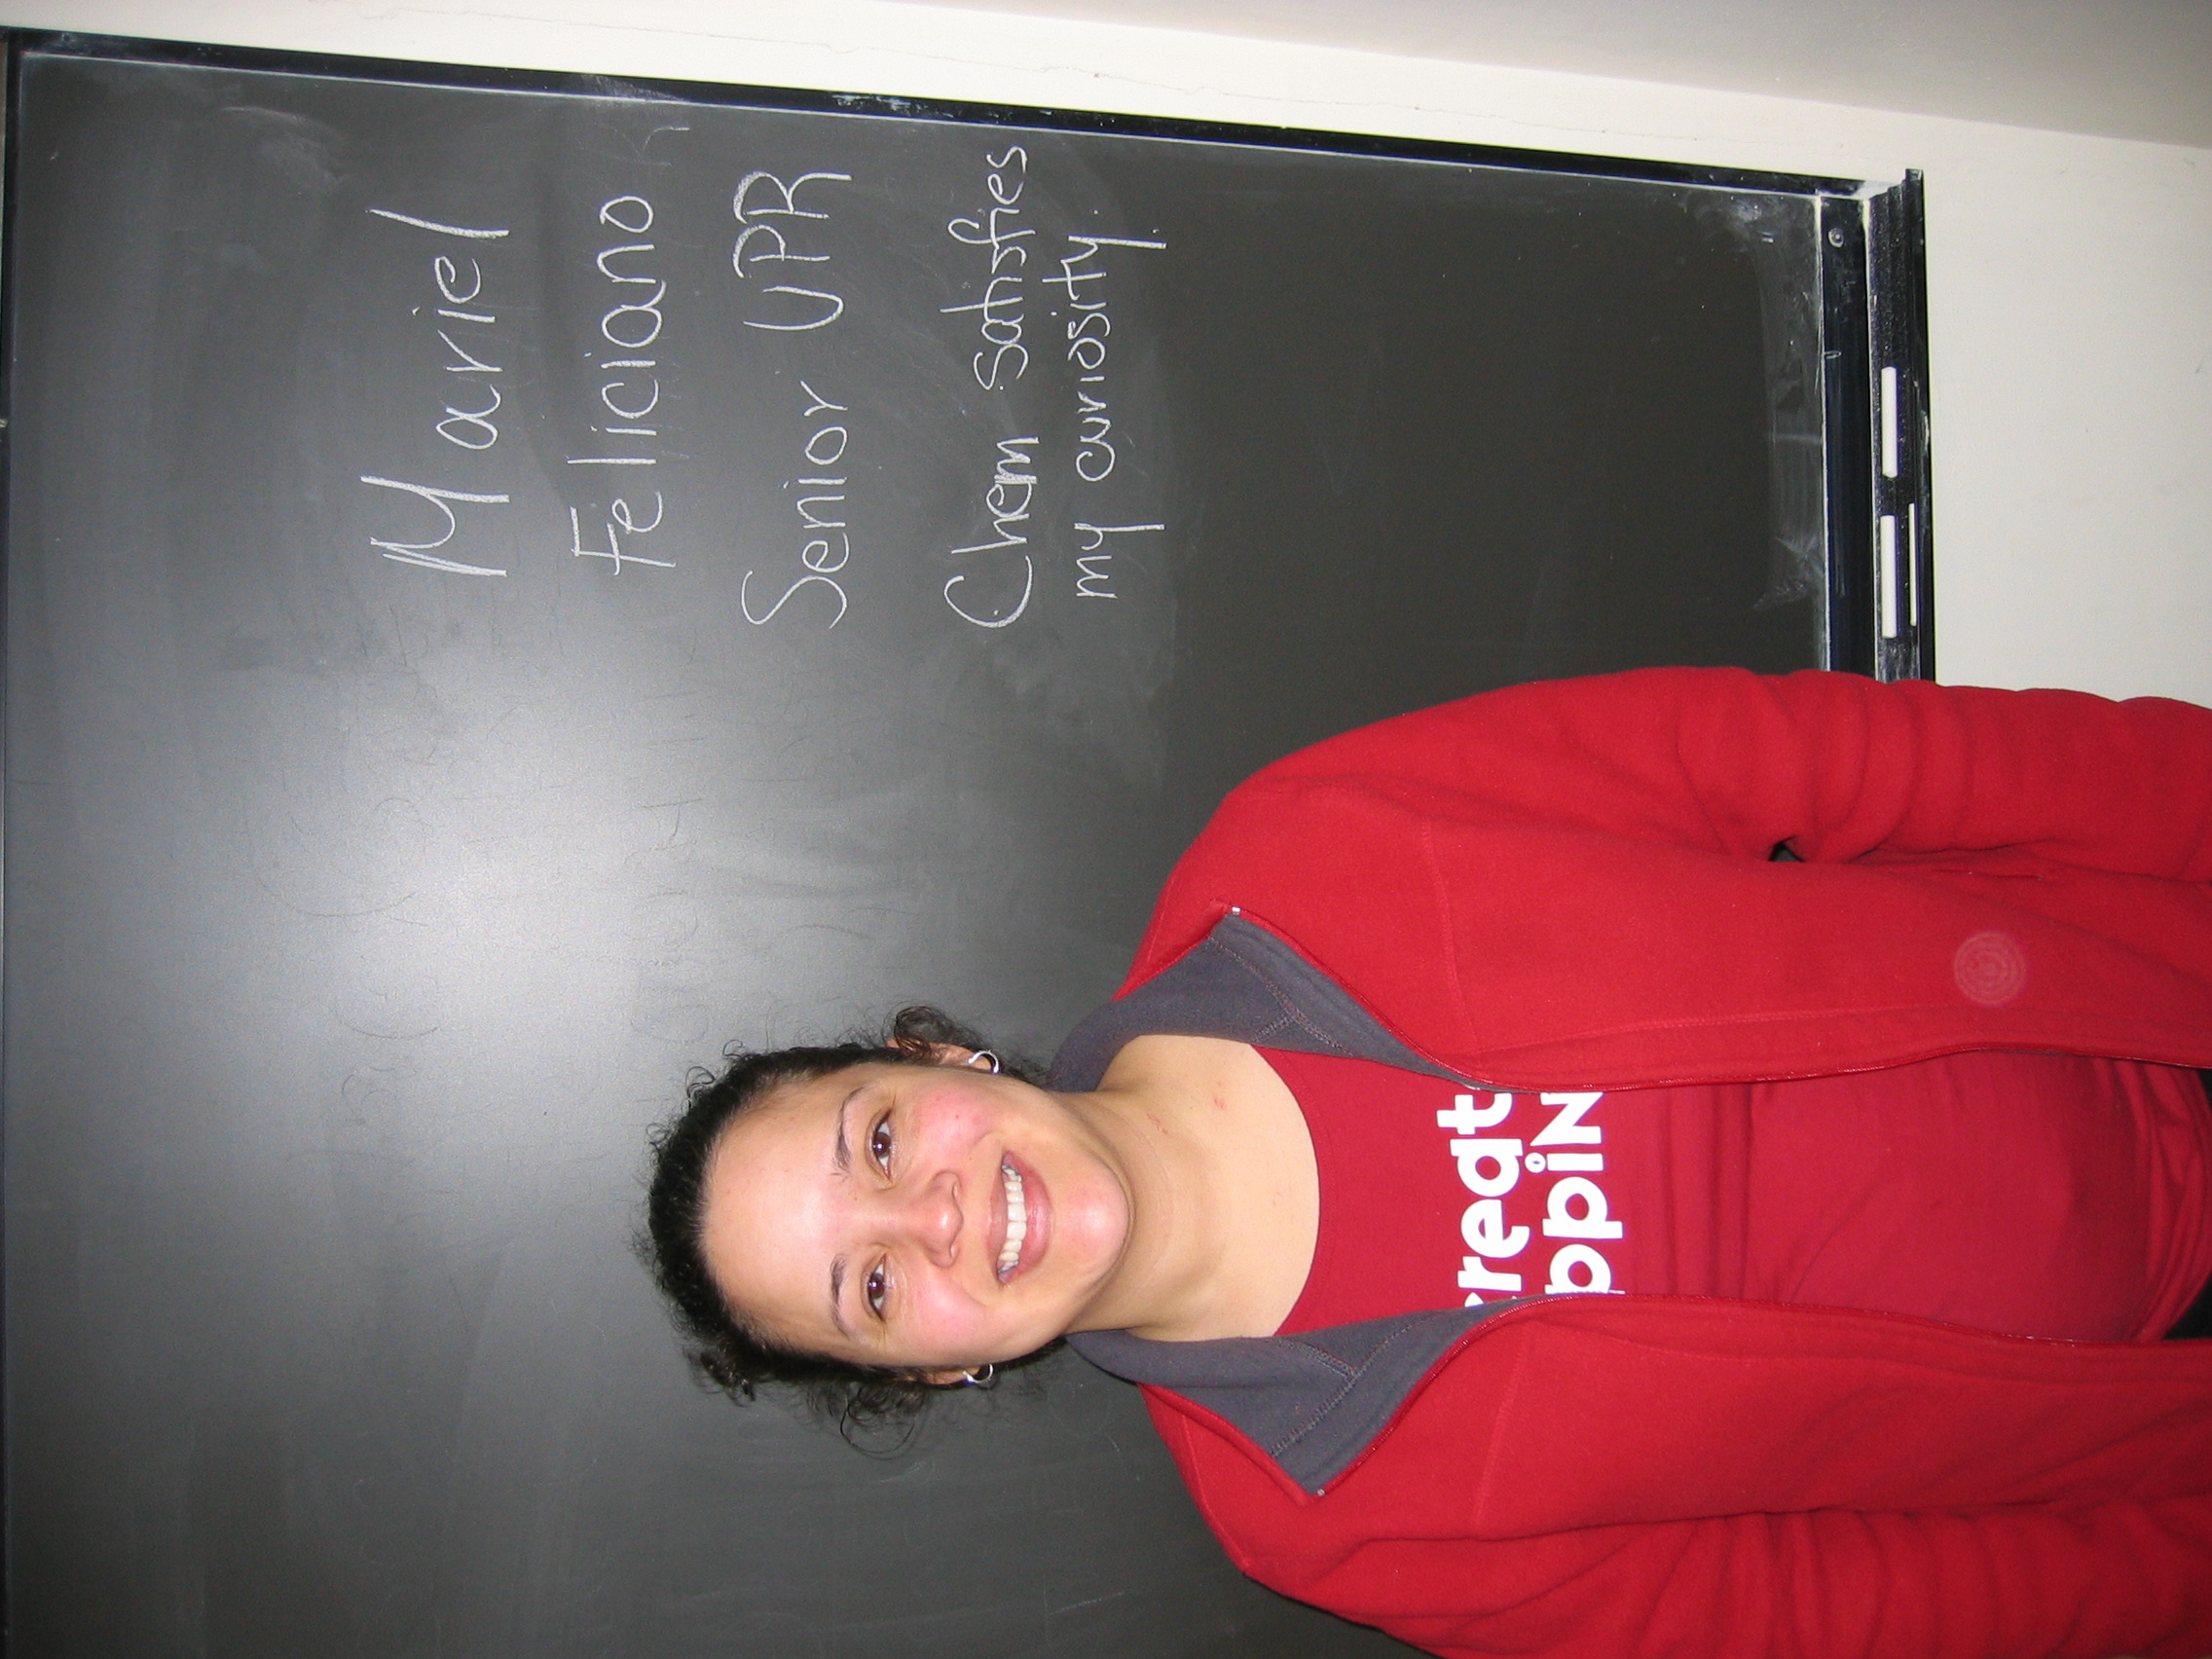 Mariel
Feliciano
Senior UPR
Chem satisfies
my curiosity.